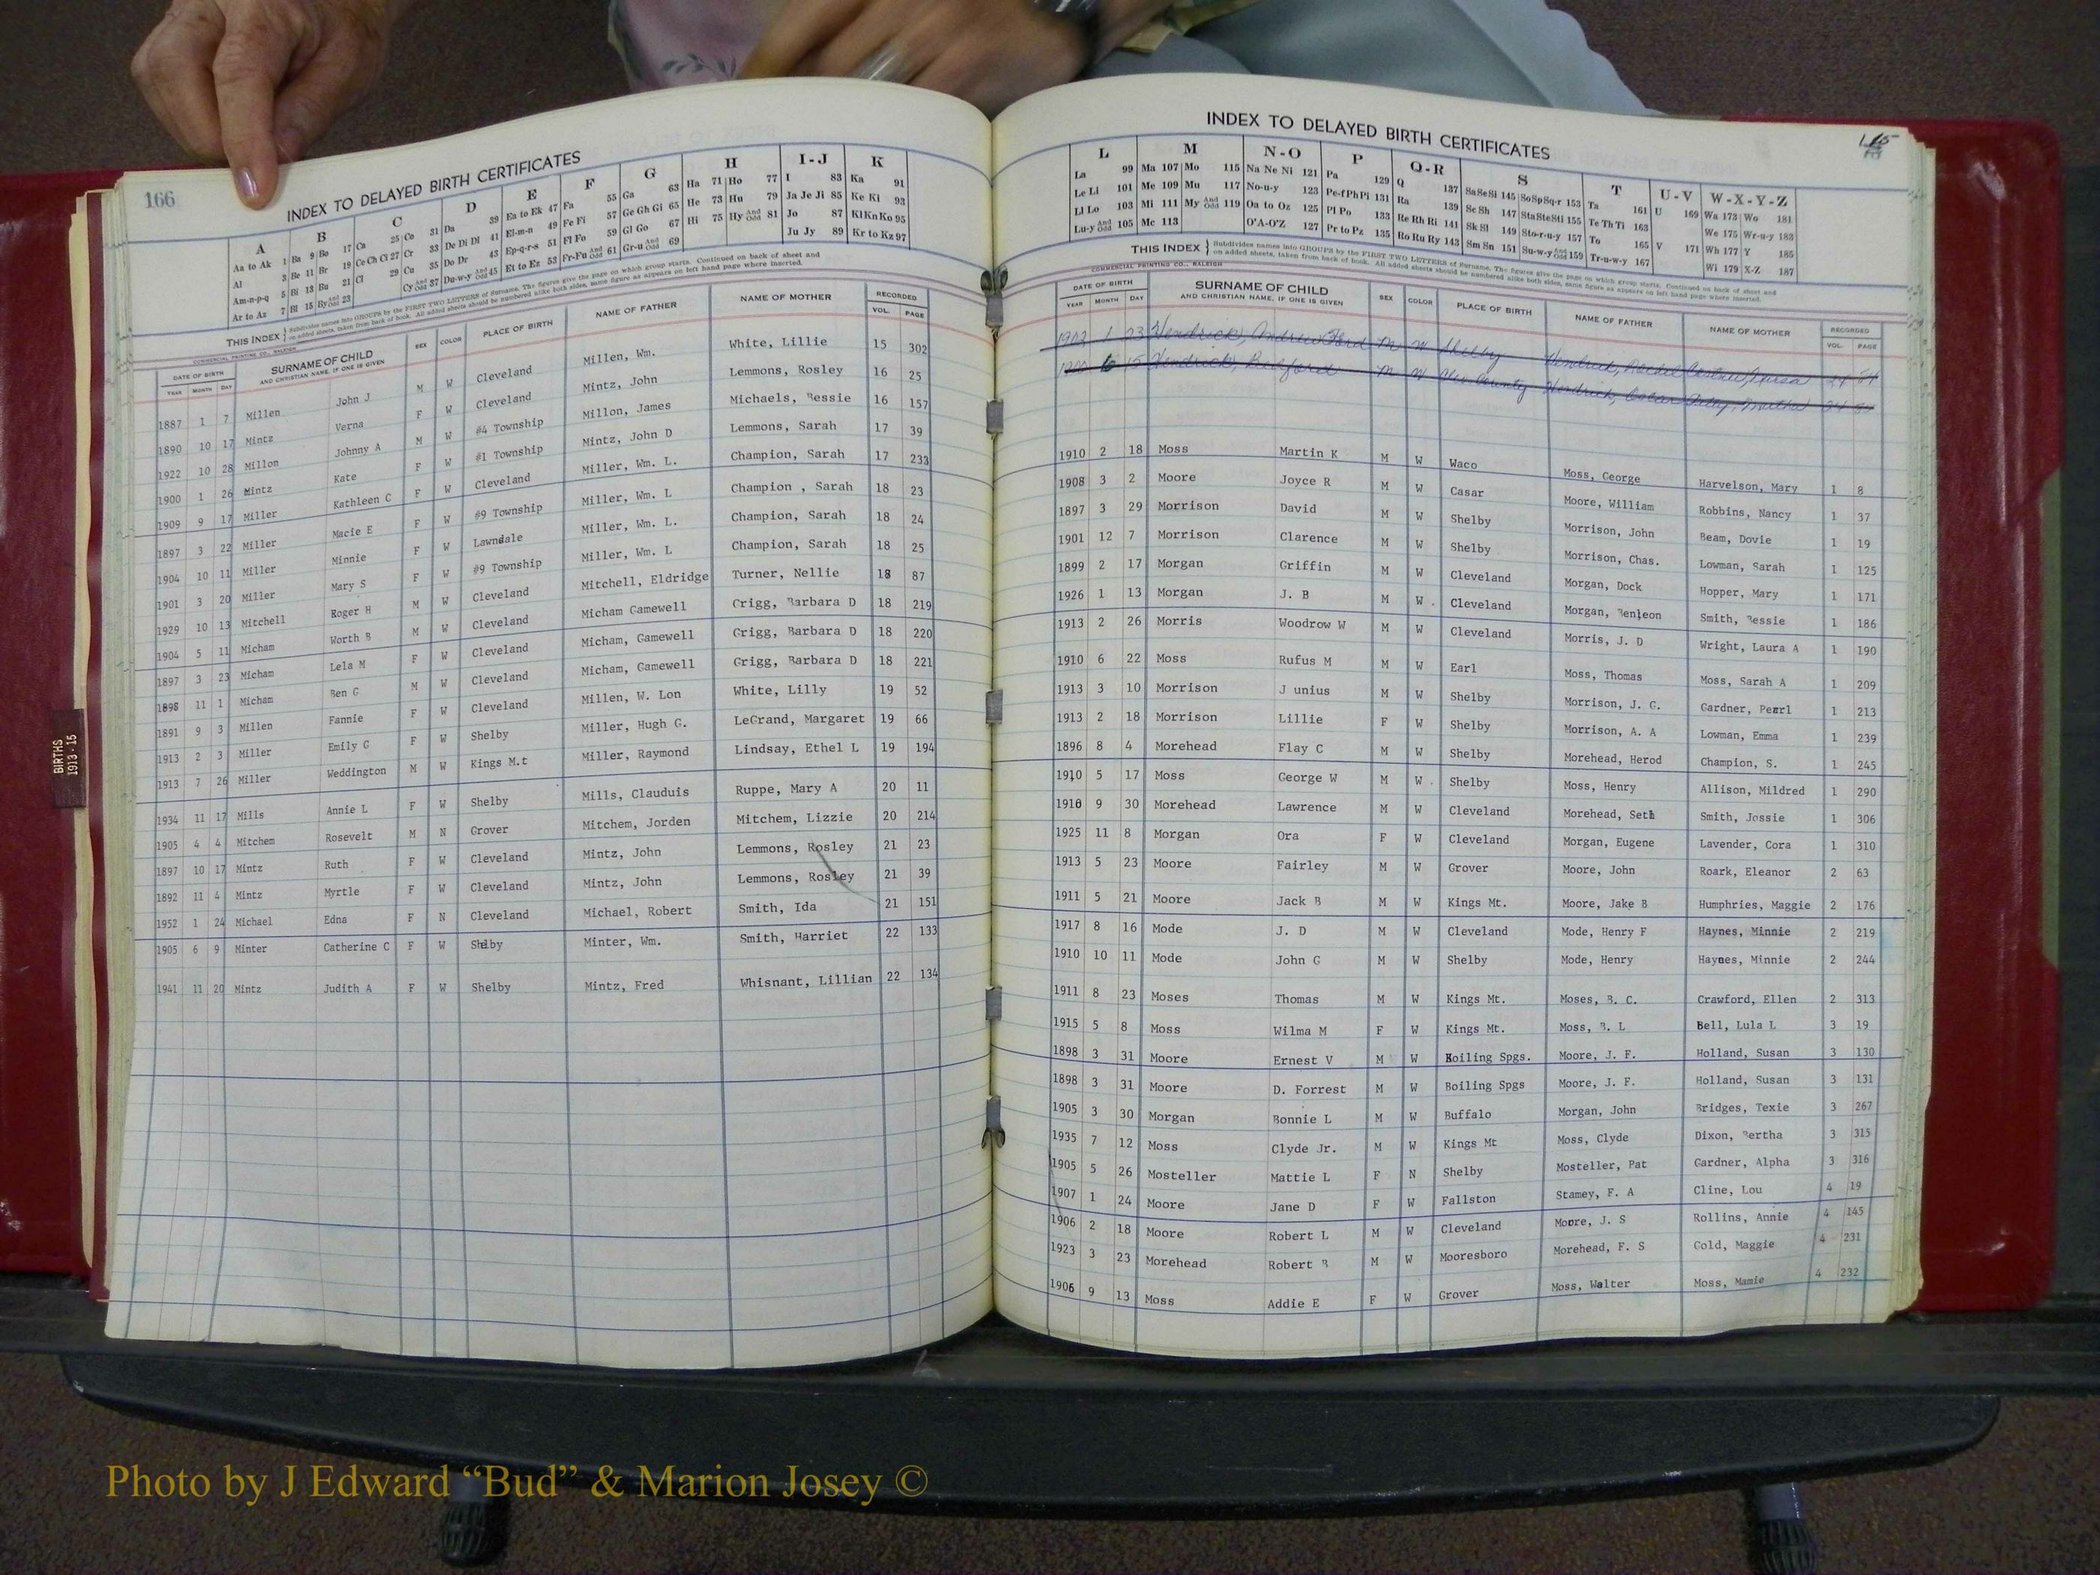 166
INDEX TO DELAYED BIRTH CERTIFICATES
A B C D E F G H I-J K
Aa to Ak 1 Ba 9 Bo 17 Ca 25 Co 31 Da 39 Ea to Ek 47 Fa 55 Ga 63 Ha 71 Ho 77 I 83 Ka 91
Al 3 Be 11 Br 19 Ce Ch Ci 27 Cr 33 De Di Dl 41 El-m-n 49 Fe Fi 57 Ge Gh Gi 65 He 73 Hu 79 Ja Je Ji 85 Ke Ki 93
Am-n-p-q 5 Bi 13 Bu 21 Cl 29 Cu 35 Do Dr 43 Ep-q-r-s 51 Fl Fo 59 Gl Go 67 Hi 75 Hy And Odd 81 Jo 87 Kl Kn Ko 95
Ar to Az 7 Bl 15 By And Odd 23 Cy And Odd 37 Du-w-y And Odd 45 Et to Ez 53 Fr-Fu And Odd 61 Gr-u And Odd 69 Ju Jy 89 Kr to Kz 97
THIS INDEX } Subdivides names into GROUPS by the FIRST TWO LETTERS of Surname. The figures give the page on which group starts. Continued on back of sheet and
on added sheets, taken from back of book. All added sheets should be numbered alike both sides, same figure as appears on left hand page where inserted.
COMMERCIAL PRINTING CO., RALEIGH
DATE OF BIRTH SURNAME OF CHILD SEX COLOR PLACE OF BIRTH NAME OF FATHER NAME OF MOTHER RECORDED
YEAR MONTH DAY AND CHRISTIAN NAME, IF ONE IS GIVEN VOL. PAGE
1887 1 7 Millen John J M W Cleveland Millen, Wm. White, Lillie 15 302
1890 10 17 Mintz Verna F W Cleveland Mintz, John Lemmons, Rosley 16 25
1922 10 28 Millon Johnny A M W #4 Township Millon, James Michaels, Bessie 16 157
1900 1 26 Mintz Kate F W #1 Township Mintz, John D Lemmons, Sarah 17 39
1909 9 17 Miller Kathleen C F W Cleveland Miller, Wm. L. Champion, Sarah 17 233
1897 3 22 Miller Macie E F W #9 Township Miller, Wm. L Champion , Sarah 18 23
1904 10 11 Miller Minnie F W Lawndale Miller, Wm. L. Champion, Sarah 18 24
1901 3 20 Miller Mary S F W #9 Township Miller, Wm. L Champion, Sarah 18 25
1929 10 13 Mitchell Roger H M W Cleveland Mitchell, Eldridge Turner, Nellie 18 87
1904 5 11 Micham Worth B M W Cleveland Micham Gamewell Grigg, Barbara D 18 219
1897 3 23 Micham Lela M F W Cleveland Micham, Gamewell Grigg, Barbara D 18 220
1898 11 1 Micham Ben G M W Cleveland Micham, Gamewell Grigg, Barbara D 18 221
1891 9 3 Millen Fannie F W Cleveland Millen, W. Lon White, Lilly 19 52
1913 2 3 Miller Emily G F W Shelby Miller, Hugh G. LeGrand, Margaret 19 66
1913 7 26 Miller Weddington M W Kings M.t Miller, Raymond Lindsay, Ethel L 19 194
1934 11 17 Mills Annie L F W Shelby Mills, Clauduis Ruppe, Mary A 20 11
1905 4 4 Mitchem Rosevelt M N Grover Mitchem, Jorden Mitchem, Lizzie 20 214
1897 10 17 Mintz Ruth F W Cleveland Mintz, John Lemmons, Rosley 21 23
1892 11 4 Mintz Myrtle F W Cleveland Mintz, John Lemmons, Rosley 21 39
1952 1 24 Michael Edna F N Cleveland Michael, Robert Smith, Ida 21 151
1905 6 9 Minter Catherine C F W Shelby Minter, Wm. Smith, Harriet 22 133
1941 11 20 Mintz Judith A F W Shelby Mintz, Fred Whisnant, Lillian 22 134
BIRTHS
1913-15
INDEX TO DELAYED BIRTH CERTIFICATES
L M N-O P Q-R S T U-V W-X-Y-Z
La 99 Ma 107 Mo 115 Na Ne Ni 121 Pa 129 Q 137 Sa Se Si 145 So Sp Sq-r 153 Ta 161 U 169 Wa 173 Wo 181
Le Li 101 Me 109 Mu 117 No-u-y 123 Pe-f Ph Pi 131 Ra 139 Sc Sh 147 Sta Ste Sti 155 Te Th Ti 163 We 175 Wr-u-y 183
Ll Lo 103 Mi 111 My And Odd 119 Oa to Oz 125 Pl Po 133 Re Rh Ri 141 Sk Sl 149 Sto-r-u-y 157 To 165 V 171 Wh 177 Y 185
Lu-y And Odd 105 Mc 113 O'A-O'Z 127 Pr to Pz 135 Ro Ru Ry 143 Sm Sn 151 Su-w-y And Odd 159 Tr-u-w-y 167 Wi 179 X-Z 187
THIS INDEX } Subdivides names into GROUPS by the FIRST TWO LETTERS of Surname. The figures give the page on which group starts. Continued on back of sheet and
on added sheets, taken from back of book. All added sheets should be numbered alike both sides, same figure as appears on left hand page where inserted.
COMMERCIAL PRINTING CO., RALEIGH
DATE OF BIRTH SURNAME OF CHILD SEX COLOR PLACE OF BIRTH NAME OF FATHER NAME OF MOTHER RECORDED
YEAR MONTH DAY AND CHRISTIAN NAME, IF ONE IS GIVEN VOL. PAGE
1 23 Hendrick, Andrew Ford M W Shelby
6 15 Hendrick, M W Cleve County Hendrick, Martha 24
1910 2 18 Moss Martin K M W Waco Moss, George Harvelson, Mary 1 8
1908 3 2 Moore Joyce R M W Casar Moore, William Robbins, Nancy 1 37
1897 3 29 Morrison David M W Shelby Morrison, John Beam, Dovie 1 19
1901 12 7 Morrison Clarence M W Shelby Morrison, Chas. Lowman, Sarah 1 125
1899 2 17 Morgan Griffin M W Cleveland Morgan, Dock Hopper, Mary 1 171
1926 1 13 Morgan J. B M W Cleveland Morgan, Benleon Smith, Bessie 1 186
1913 2 26 Morris Woodrow W M W Cleveland Morris, J. D Wright, Laura A 1 190
1910 6 22 Moss Rufus M M W Earl Moss, Thomas Moss, Sarah A 1 209
1913 3 10 Morrison J unius M W Shelby Morrison, J. G. Gardner, Pearl 1 213
1913 2 18 Morrison Lillie F W Shelby Morrison, A. A Lowman, Emma 1 239
1896 8 4 Morehead Flay C M W Shelby Morehead, Herod Champion, S. 1 245
1910 5 17 Moss George W M W Shelby Moss, Henry Allison, Mildred 1 290
1910 9 30 Morehead Lawrence M W Cleveland Morehead, Seth Smith, Jossie 1 306
1925 11 8 Morgan Ora F W Cleveland Morgan, Eugene Lavender, Cora 1 310
1913 5 23 Moore Fairley M W Grover Moore, John Roark, Eleanor 2 63
1911 5 21 Moore Jack B M W Kings Mt. Moore, Jake B Humphries, Maggie 2 176
1917 8 16 Mode J. D M W Cleveland Mode, Henry F Haynes, Minnie 2 219
1910 10 11 Mode John G M W Shelby Mode, Henry Haynes, Minnie 2 244
1911 8 23 Moses Thomas M W Kings Mt. Moses, B. C. Crawford, Ellen 2 313
1915 5 8 Moss Wilma M F W Kings Mt. Moss, B. L Bell, Lula L 3 19
1898 3 31 Moore Ernest V M W Boiling Spgs. Moore, J. F. Holland, Susan 3 130
1898 3 31 Moore D. Forrest M W Boiling Spgs Moore, J. F. Holland, Susan 3 131
1905 3 30 Morgan Bonnie L M W Buffalo Morgan, John Bridges, Texie 3 267
1935 7 12 Moss Clyde Jr. M W Kings Mt Moss, Clyde Dixon, Bertha 3 315
1905 5 26 Mosteller Mattie L F N Shelby Mosteller, Pat Gardner, Alpha 3 316
1907 1 24 Moore Jane D F W Fallston Stamey, F. A Cline, Lou 4 19
1906 2 18 Moore Robert L M W Cleveland Moore, J. S Rollins, Annie 4 145
1923 3 23 Morehead Robert B M W Mooresboro Morehead, F. S Gold, Maggie 4 231
1906 9 13 Moss Addie E F W Grover Moss, Walter Moss, Mamie 4 232
Photo by J Edward “Bud” & Marion Josey ©